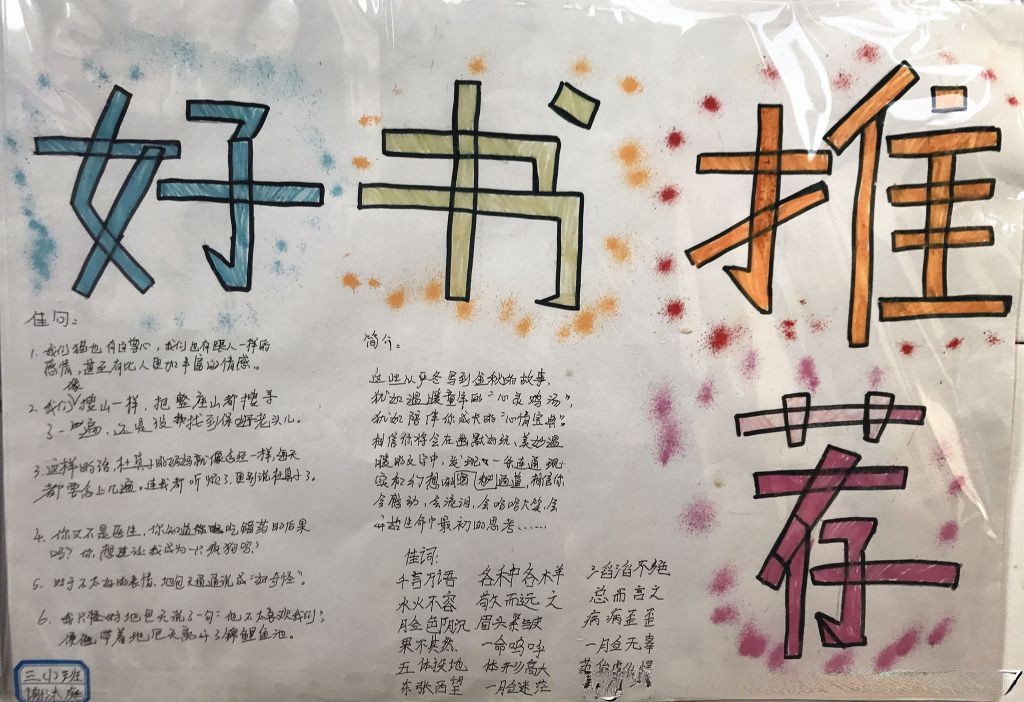 好书推
荐
佳句:
1. 我们猫也有自尊心，我们也有跟人一样的
感情，甚至有比人更加丰富的情感。
2. 我们像搜山一样，把整座山都搜寻
了一遍，还是没找到保罗老头儿。
3. 这样的话，杜真子的妈妈就像念经一样，每天
都要念上几遍，连我都听烦了，更别说杜真子了。
4. 你又不是医生，你知道吃错药的后果
吗？你想让我成为一只疯狗吗？
5. 对于不太好的表情，地包天通通说成“好奇怪”。
6. 我只好对地包天说了一句：他不太喜欢我们，
便带着地包天离开了锦鲤鱼池。
简介:
这些从严冬写到金秋的故事，
犹如温暖童年的“心灵鸡汤”，
犹如陪伴你成长的“心情宝典”。
相信你将会在幽默好玩、美妙温
暖的文字中，发现一条连通现
实和幻想的通道，相信你
会感动，会流泪，会哈哈大笑，会
开始生命中最初的思考……
佳词:
千言万语 各种各样 滔滔不绝
水火不容 敬而远之 总而言之
脸色阴沉 眉头紧皱 病病歪歪
果不其然 一命呜呼 一脸无辜
五体投地 体形高大
东张西望 一脸迷茫
三(小)班